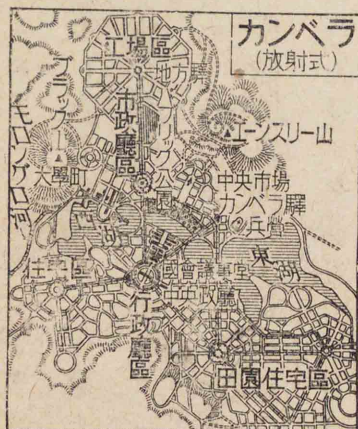 カンベラ
(放射式)
工場區
地方驛
市政廳區
ブラック山
モロングロ河
大學町
エーンスリー山
中央市場
カンベラ驛
兵營
西湖
東湖
國會議事堂
中央政廳
行政廳區
田園住宅區